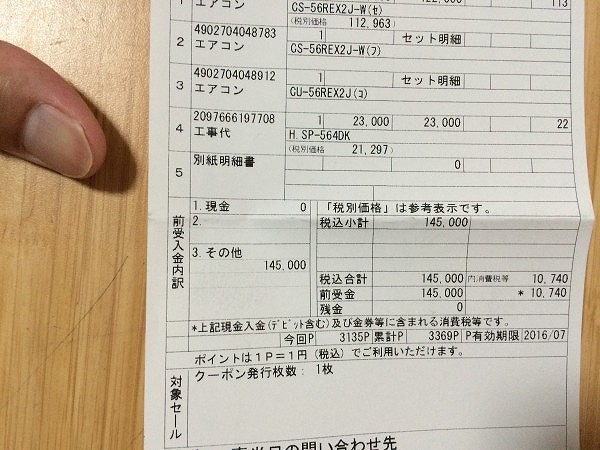 1 エアコン 113
CS-56REX2J-W(セ)
(税別価格 112,963)
2 4902704048783 1 セット明細
エアコン CS-56REX2J-W(フ)
3 4902704048912 1 セット明細
エアコン CU-56REX2J(コ)
4 2097666197708 1 23,000 23,000 22
工事代 H.SP-564DK
(税別価格 21,297)
5 別紙明細書 0
前受入金内訳
1.現金 0 「税別価格」は参考表示です。
2. 税込小計 145,000
3.その他
145,000
税込合計 145,000 内消費税等 10,740
前受金 145,000 * 10,740
残金 0
*上記現金入金(デビット含む)及び金券等に含まれる消費税等です。
今回P 3135P 累計P 3369P P有効期限 2016/07
ポイントは1P=1円(税込)でご利用いただけます。
対象セール
クーポン発行枚数: 1枚
当日の問い合わせ先